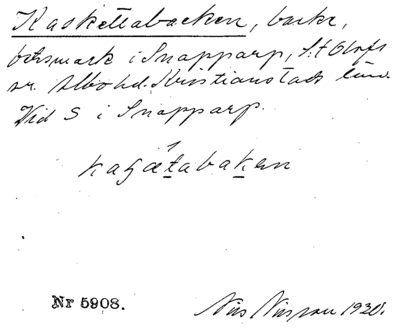 Kaskettabacken, backe,
betesmark i Snapparp, S:t Olofs
sn. Albo hd. Kristianstads län.
Vid S i Snapparp.
kaʃætabakən
Nr 5908.
Nils Nilsson 1930.